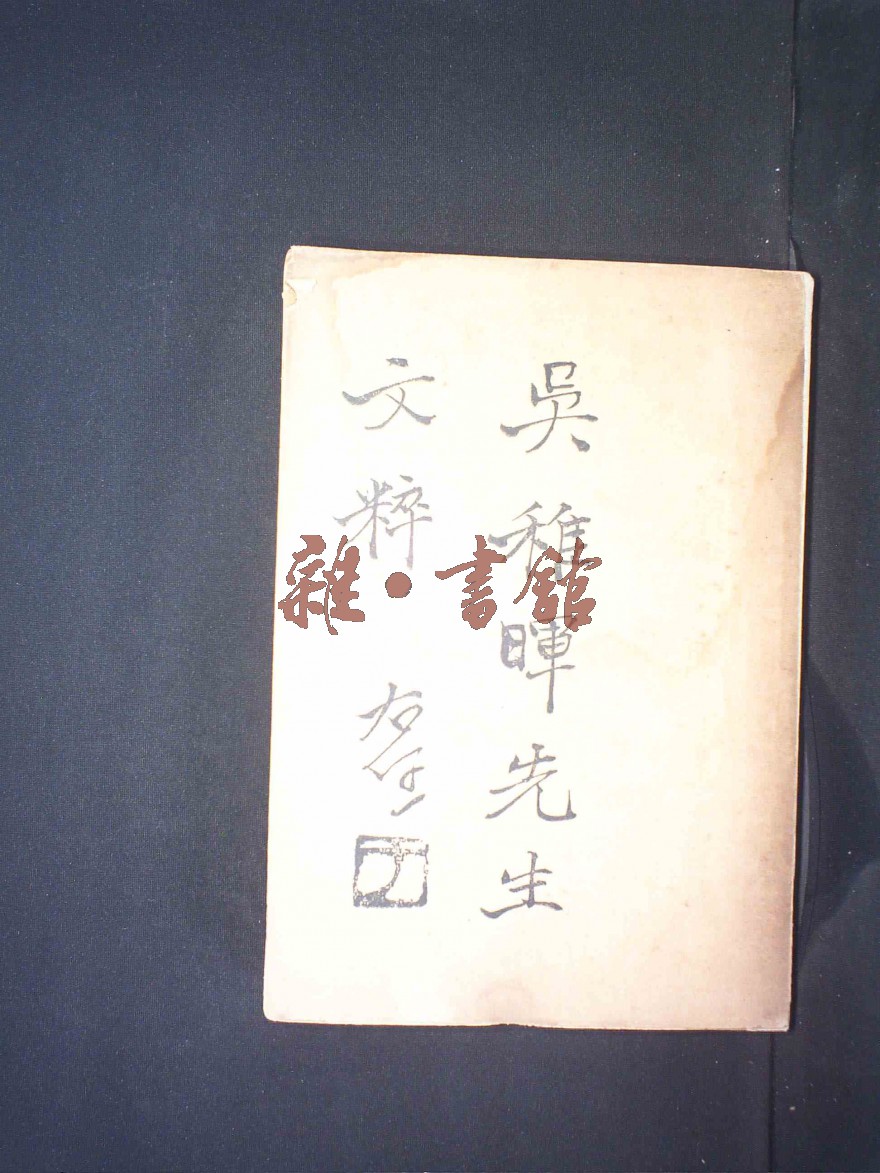 吳稚暉先生
文粹
右任
雜·書館